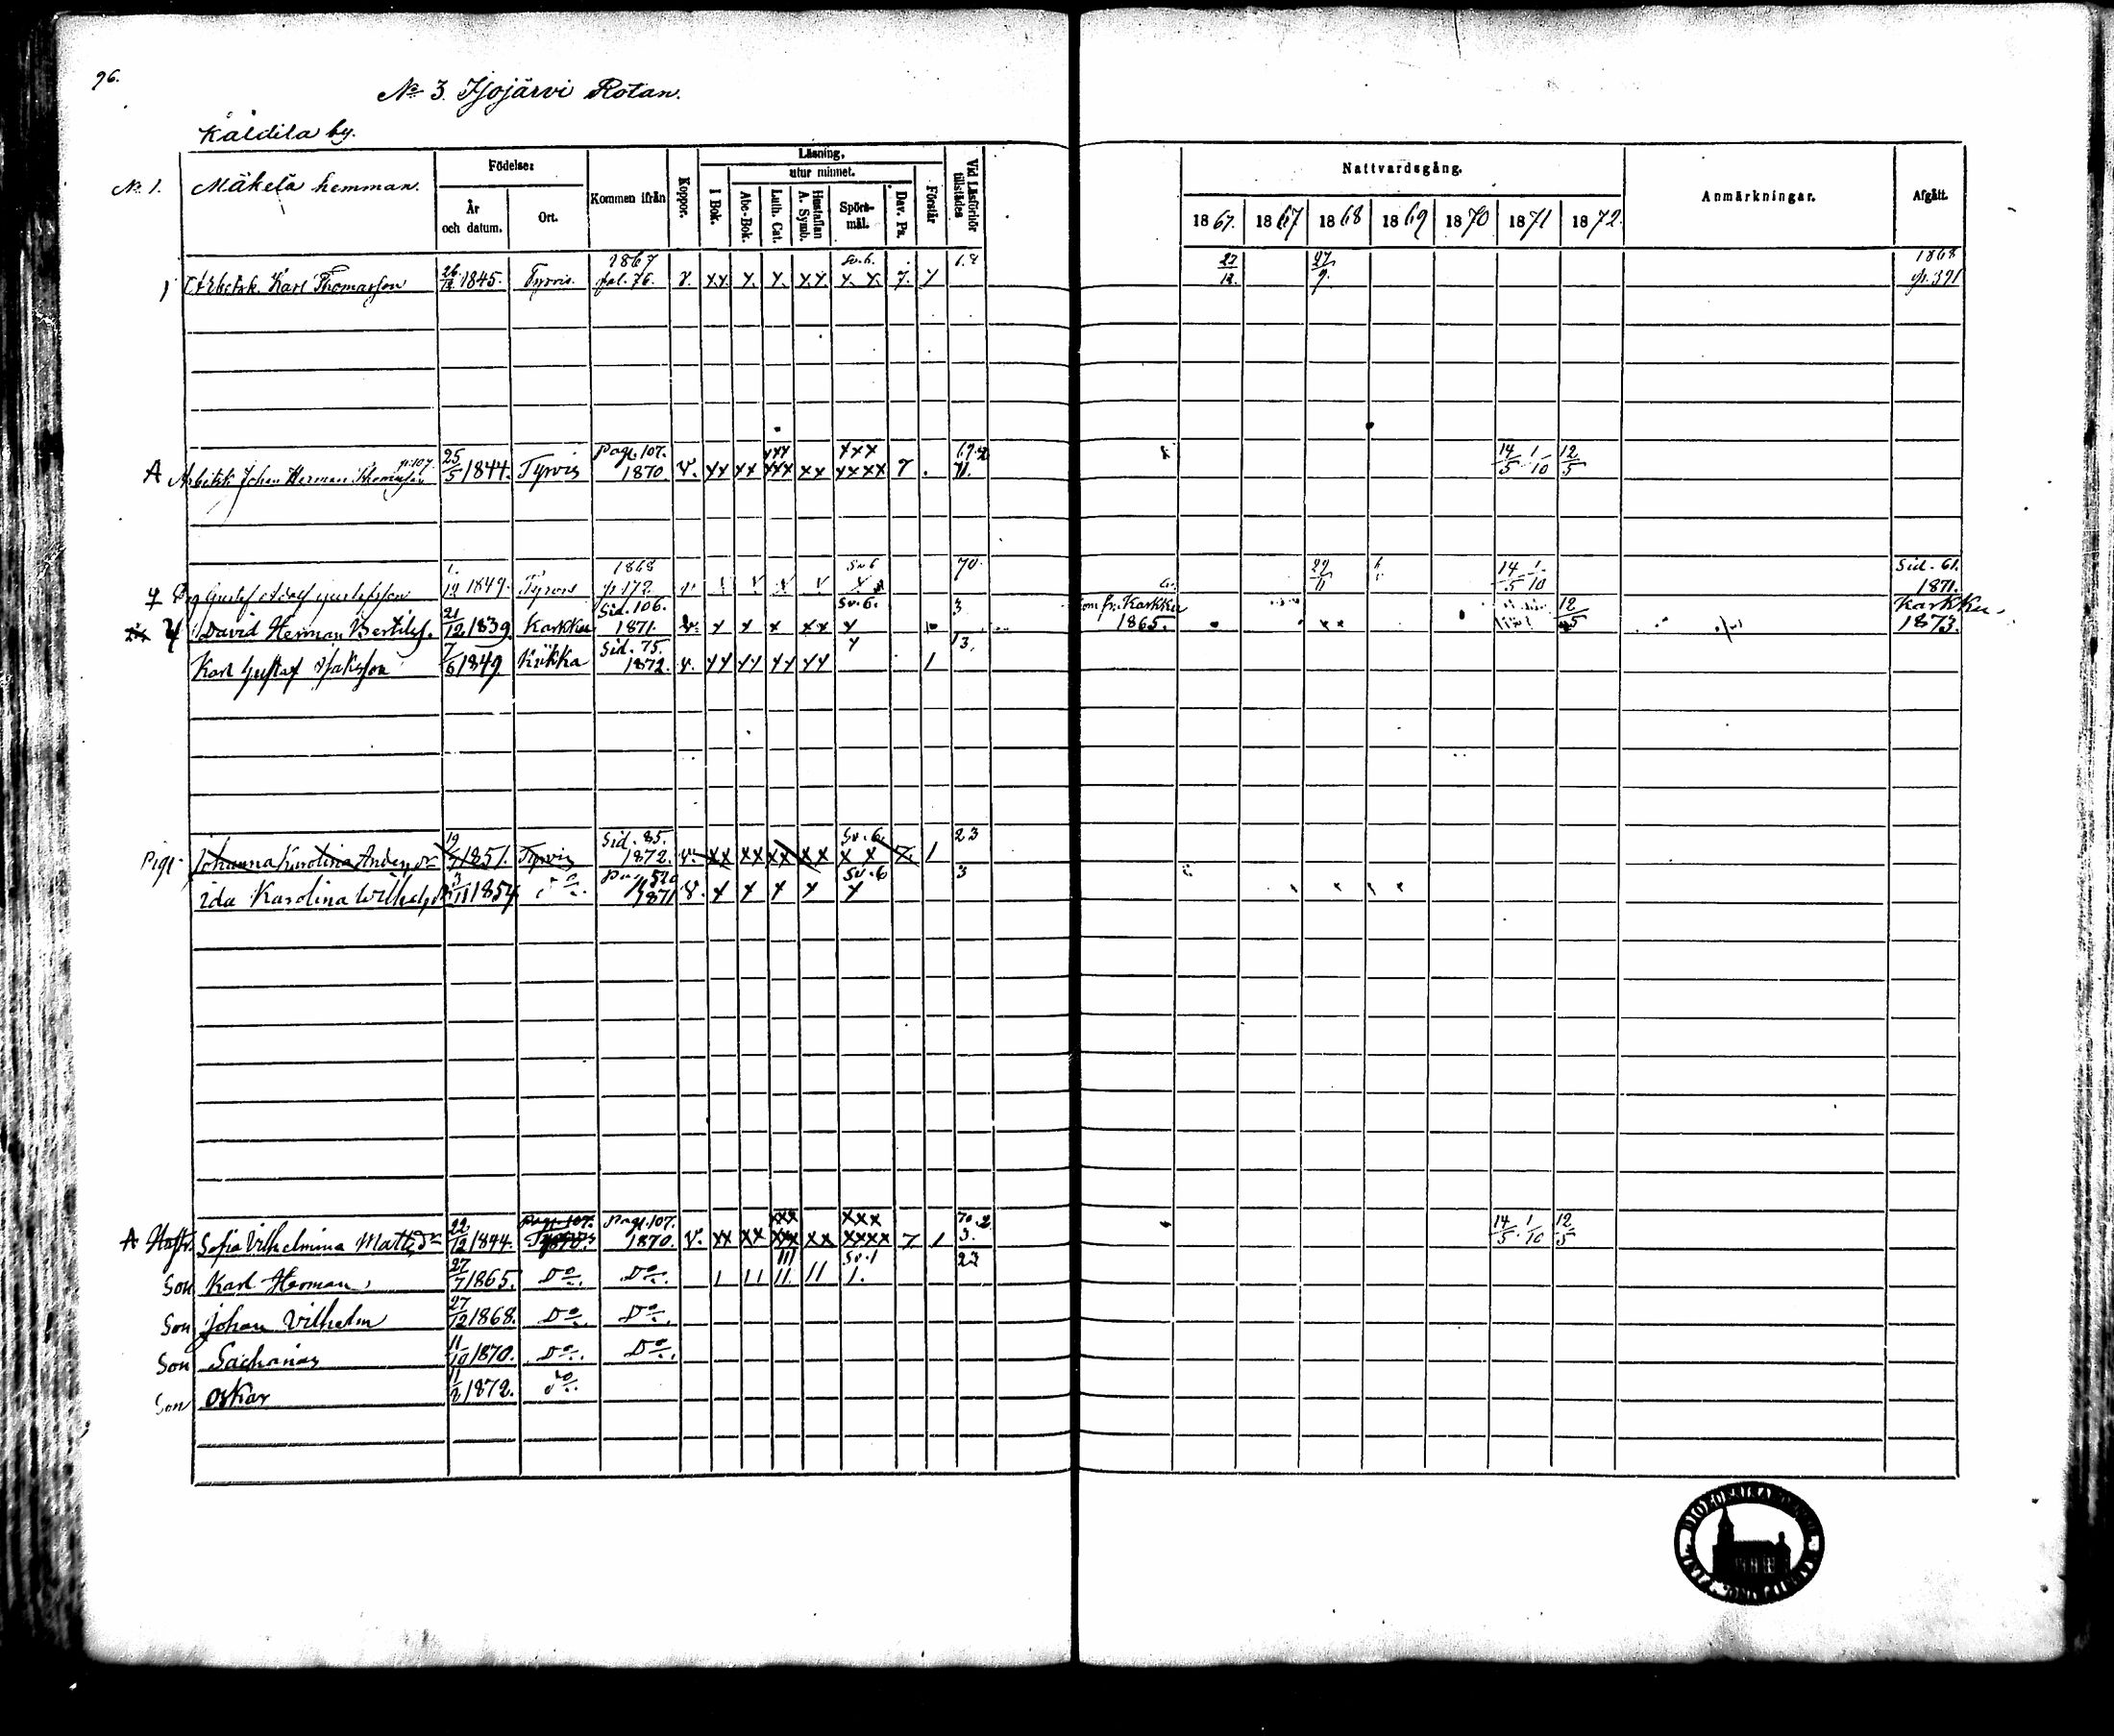 96.
No 3. Jjojärvi Rotan.
Kåldila by.
No 1. Mäkelä hemman.
Födelse:
År och datum.
Ort.
Kommen ifrån
Koppor.
Läsning,
I Bok.
utur minnet.
Abc-Bok.
Luth. Cat.
Hustaflan A. Symb.
Spörs-mål.
Dav. Ps.
Förstår
Vid Läsförhör tillstädes
Nattvardsgång.
1867. 1867 1868 1869 1870 1871 1872.
Anmärkningar.
Afgått.
Arbetsk. Karl Thomasson 26/12 1845. Tyrvis. 1867 fol. 76. v. xx x. x. xx Sv. 6. x. x. 7. 27/12. 27/9. 1868 p. 391
A Arbetsk Johan Herman Thomasson p. 107 25/5 1844. Tyrvis Pag. 107. 1870. v. xx xx xxx xxx xx xxx xxxx 7 . 71. 14/5 1/10 12/5
Drg Gustaf Adolf Gustafsson 1/12 1849. Tyrvis 1868 p 172 Sv 6 70. 14/5 1/10 Sid. 61. 1871.
David Herman Bertilss. 21/12 1839. Karkku Sid. 106. 1871. v. x x x xx Sv. 6. x 3 fr. Karkku 1865. 12/5 Karkku 1873.
Karl Gustaf Isaksson 7/6 1849. Kiikka Sid. 75. 1872. v. xx xx xx xx x 1 3.
Pig. Johanna Karolina Andersdr 19/7 1851. Tyrvis Sid. 85. 1872. v. xx xx xx xx Sv. 6 x x 7. 1 23
Ida Karolina Wilhelmsdr 3/11 1854 do 1871 v. x x x x Sv. 6 x 3
A Hustr. Sofia Vilhelmina Mattsdr 22/12 1844. Pag. 107. Pag. 107. 1870. v. xx xx xxx xxx xx xxx xxxx 7. 1 3. 14/5 1/10 12/5
Son Karl Herman 27/7 1865. Do Do 1 11 III 11 11 Sv. 1 1. 23
Son Johan Vilhelm 27/12 1868. Do Do
Son Sachanias 11/10 1870. Do Do
Son Oskar 11/2 1872. do